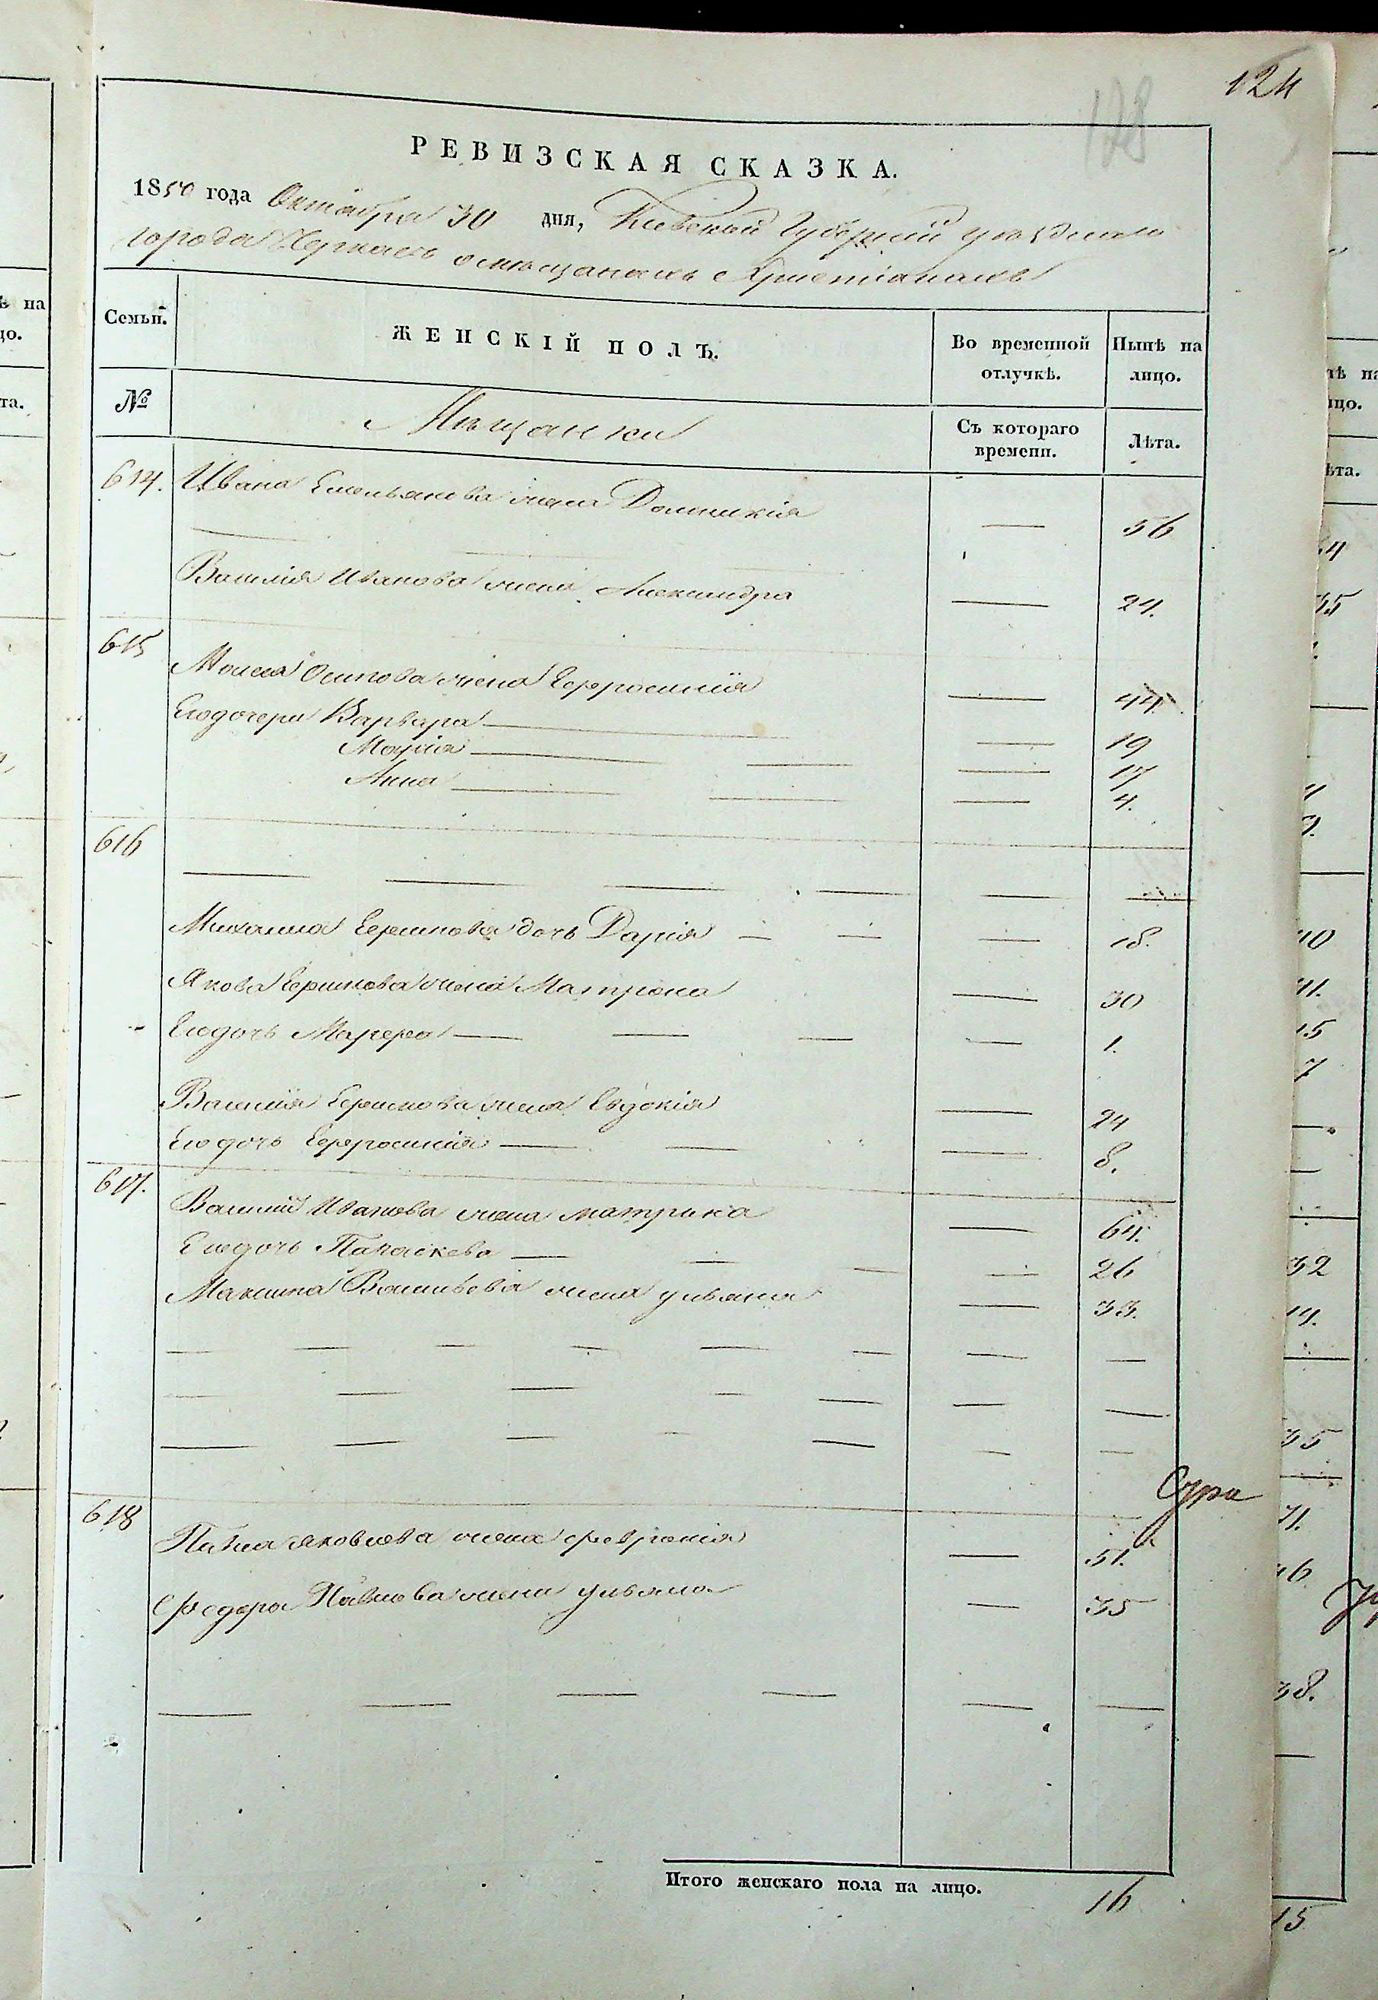 124
128
РЕВИЗСКАЯ СКАЗКА.
1850 года Октября 30 дня, Киевской Губерніи уѣзднаго
города Черкасъ о мещанахъ Христіанахъ
Семьи. ЖЕНСКІЙ ПОЛЪ. Во временной отлучкѣ. Нынѣ на лицо.
№ Мѣщанки Съ котораго времени. Лѣта.
614. Ивана Емельянова жена Домникія — 56
Василія Иванова жена Александра — 24.
615 Моисея Осипова жена Ефросинія — 44.
Его дочери Варвара — 19
Марія — 17
Анна — 4.
616
Михаила Ефимова дочь Дарія — 18.
Якова Ефимова жена Матрона — 30
Его дочь Марфа — 1.
Василія Ефимова жена Евдокія — 24
Его дочь Ефросинія — 8.
617. Василія Иванова жена Матрона — 64.
Его дочь Параскева — 26
Максима Васильева жена Ульяна — 33.
618 Павла Яковлева жена Февронія — 51.
Федора Павлова жена Ульяна — 35
Итого женскаго пола на лицо. 16